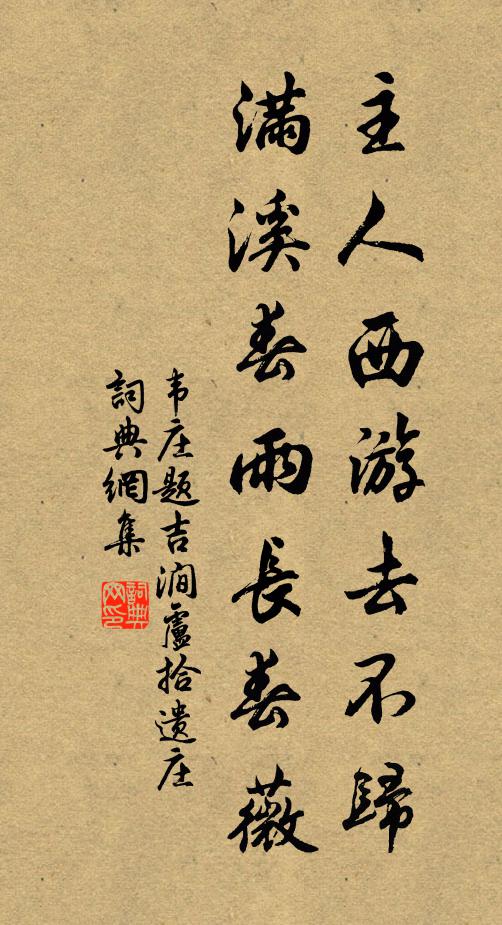 主人西游去不歸
滿溪春雨長春薇
韦庄题吉澗盧拾遺庄
詞典網集
詞典網印